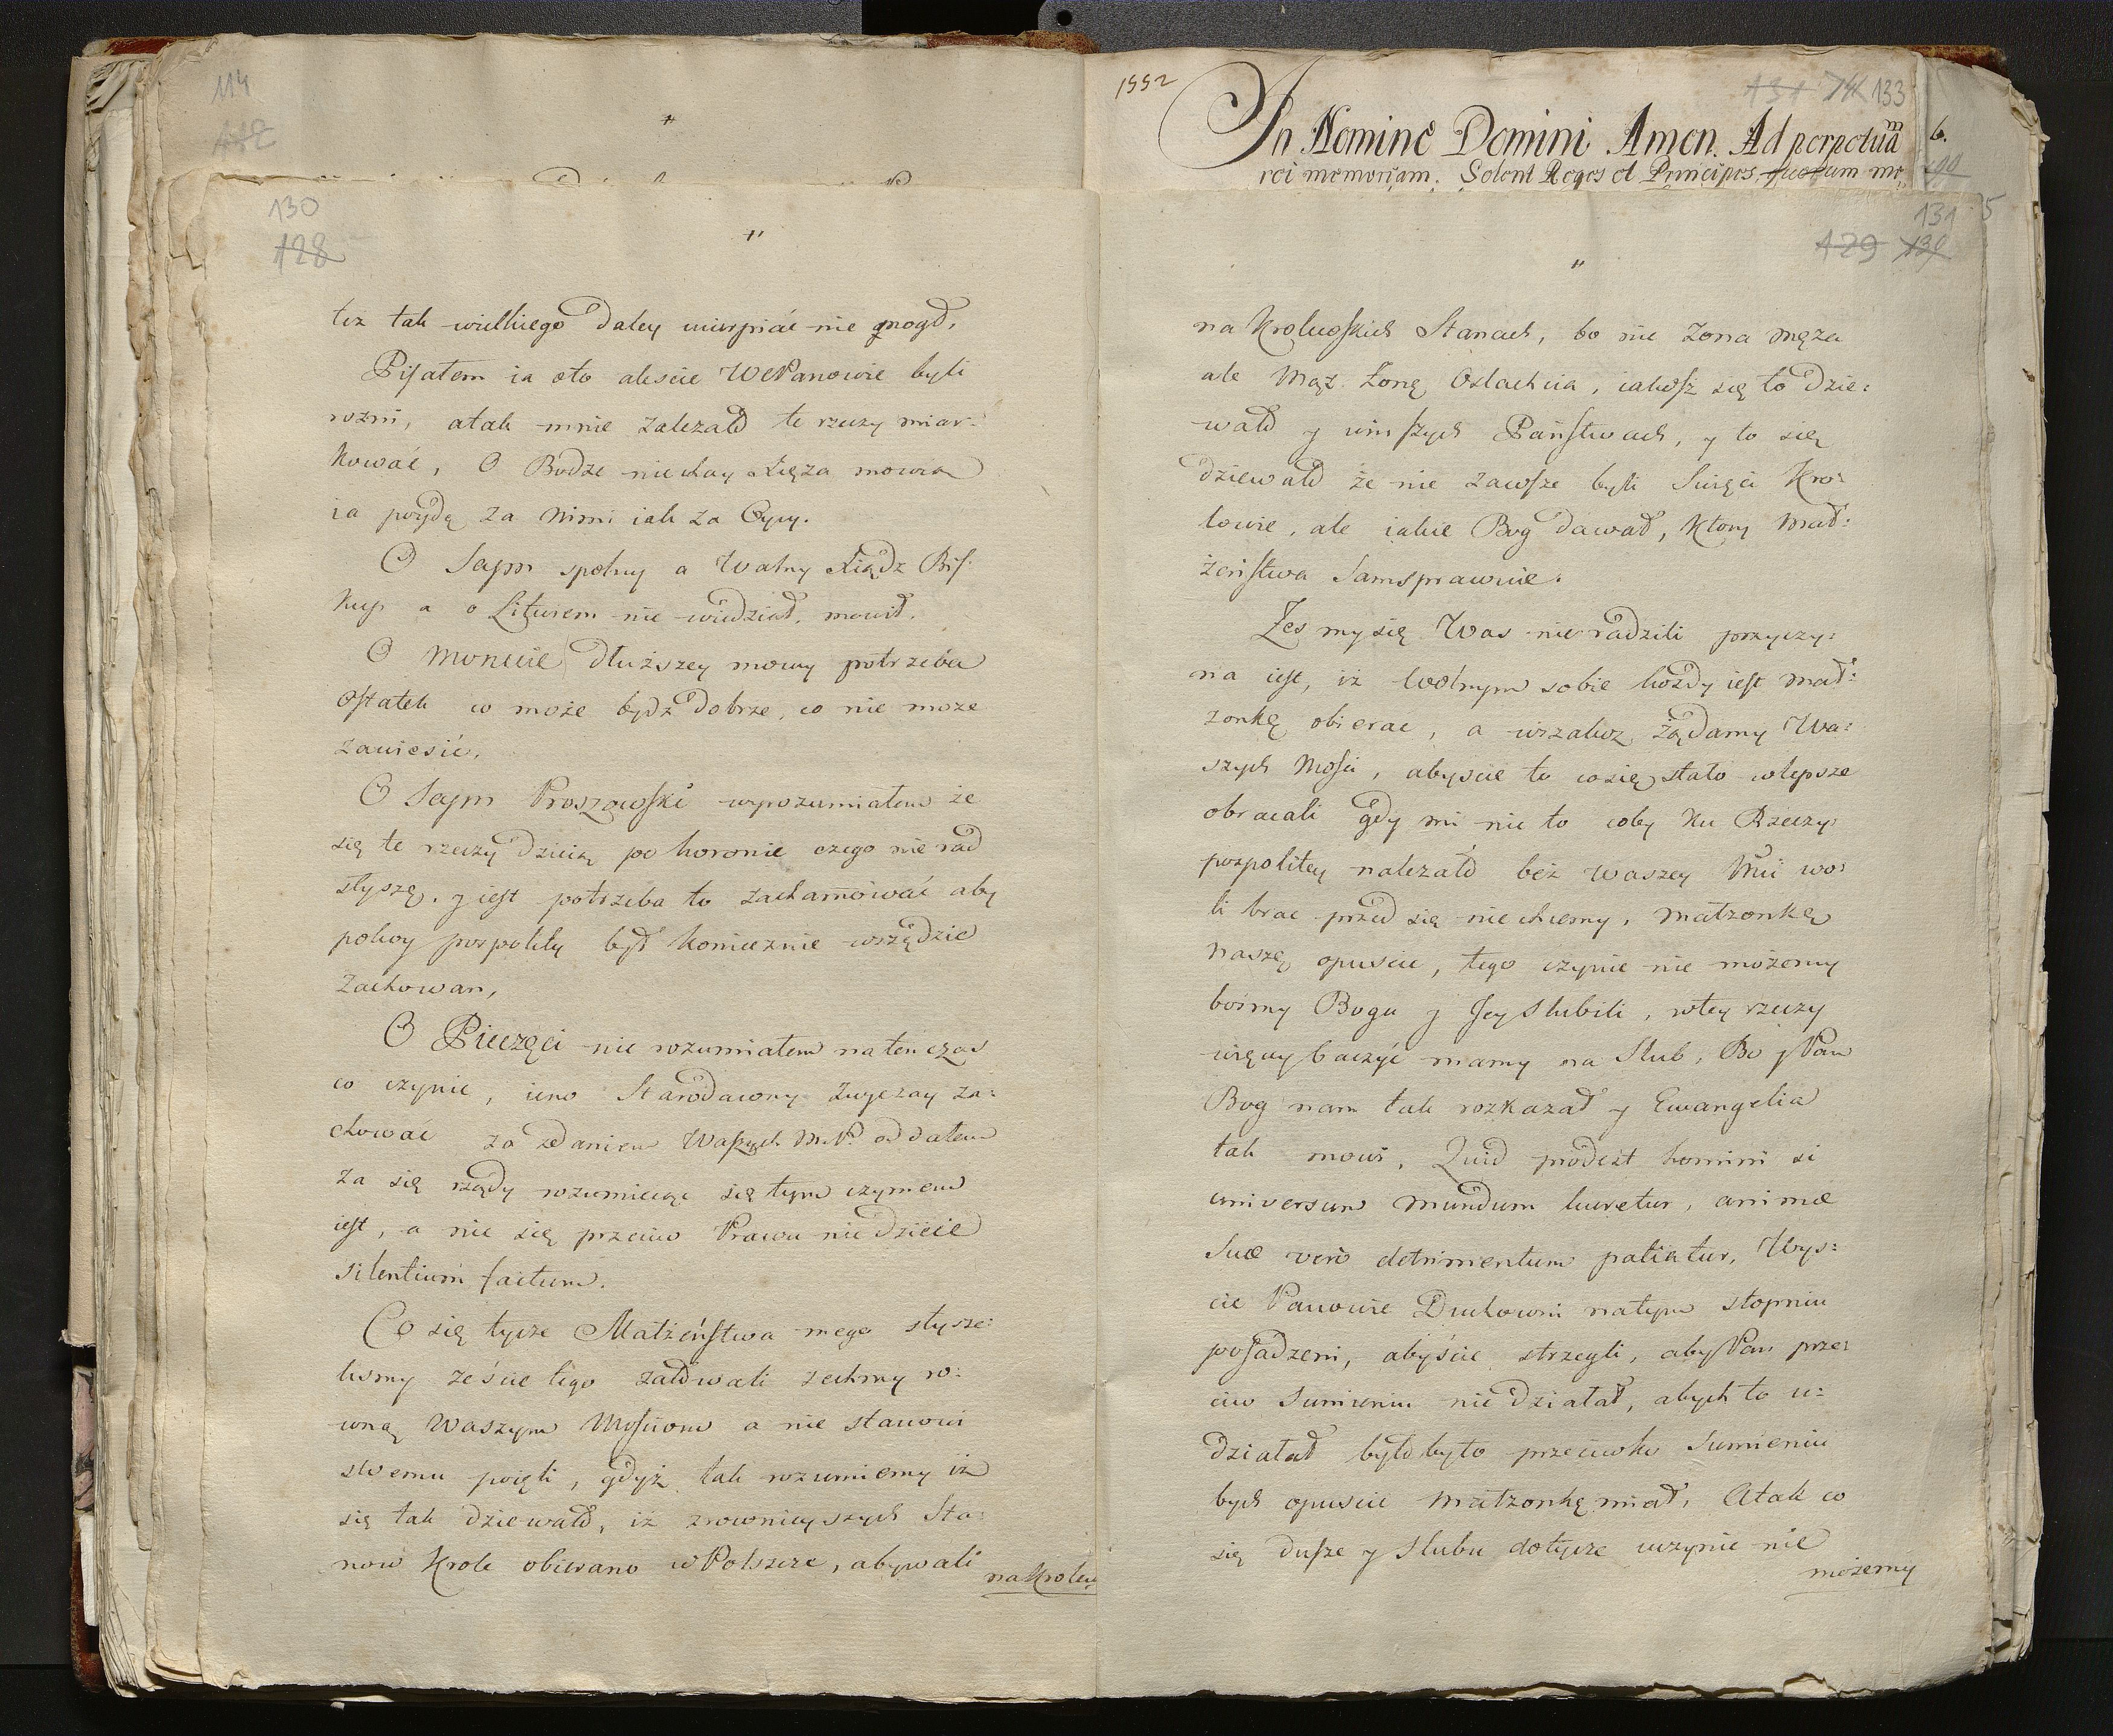 114
112
"
130
128
"
też tak wielkiego daley cierpiać nie mogł,
Pisałem ia oto abście WMPanowie byli
rozni, atak mnie zależało te rzeczy miar-
kować, O Bodze niechay Xięza mowia
ia poydę za nimi iak za Oycy.
O Saym spolny a Walny Xiądz Bis-
kup a o Litwiem nie wiedział, mowił.
O Moncie dłuższey mowy potrzeba
Ostatek co może bydz dobrze, co nie moze
zawiesić.
O Saym Proszowski wyrozumiałem że
się te rzeczy dzieią po koronie czego nie rad
słyszę. y iest potrzeba to zachamować aby
pokoy pospolity był koniecznie wszędzie
Zachowan,
O Pieczęci nie rozumiałem natenczas
co czynić, ieno Starodawny zwyczay za:
chować za zdaniem Waszych M.P. oddałem
za się rządy rozumieiąc się tym czymem
iest, a nie się przeciw Prawu nie dzieie
silentium factum.
Co się tycze Małżeństwa mego słysze:
lismy żeście tego żałowali zechmy ro:
wną Waszym Mościom a nie stanowi
swemu poięli, gdyż tak rozumiemy iż
się tak dziewało, iż zrownieyszych Sta:
now Krole obierano w Polszcze, a bywali
na Krolew
1552
131 74 133
In Nomine Domini Amen. Ad perpetuam
rei memoriam. Solent Reges et Principes, quorum me,,
6.
190
131 5
129 130
"
na Krolewskich Stanach, bo nie żona męża
ale Mąż żonę Oslachcia, iakosz się to dzie:
wało y winszych Państwach, y to się
dziewało że nie zawsze byli Swięci Kro:
lowie, ale iakie Bog dawał, ktory Mał:
żeństwa Sam sprawuie.
Żes my się Was nie radzili przyczy:
na iest, iż wolnym sobie kożdy iest mał:
zonkę obierac, a wszakoż żądamy Wa:
szych Mości, abyscie to co się stało wlepsze
obracali gdy mi nie to coby ku Rzeczy
pospolitey należało bez waszey Mci wo:
li brac przed się nie chcemy, małzonkę
naszę opuscic, tego czynic nie możemy
bosmy Bogu y Jey slubili, wtey rzeczy
więcey baczyć mamy na Slub, Bo y Pan
Bog nam tak rozkazał y Ewangelia
tak mowi, Quid prodest homini si
universum mundum lucretur, animæ
Suæ vero detrimentum patiatur, Wys:
cie Panowie Duchowni natym stopniu
posadzeni, abyście strzegli, aby Pan prze:
ciw Sumieniu nie działał, abych to u:
działał było by to przeciwko Sumieniu
bych opuscic małzonkę miał, Atak co
się dusze y slubu dotycze uczynic nie
możemy